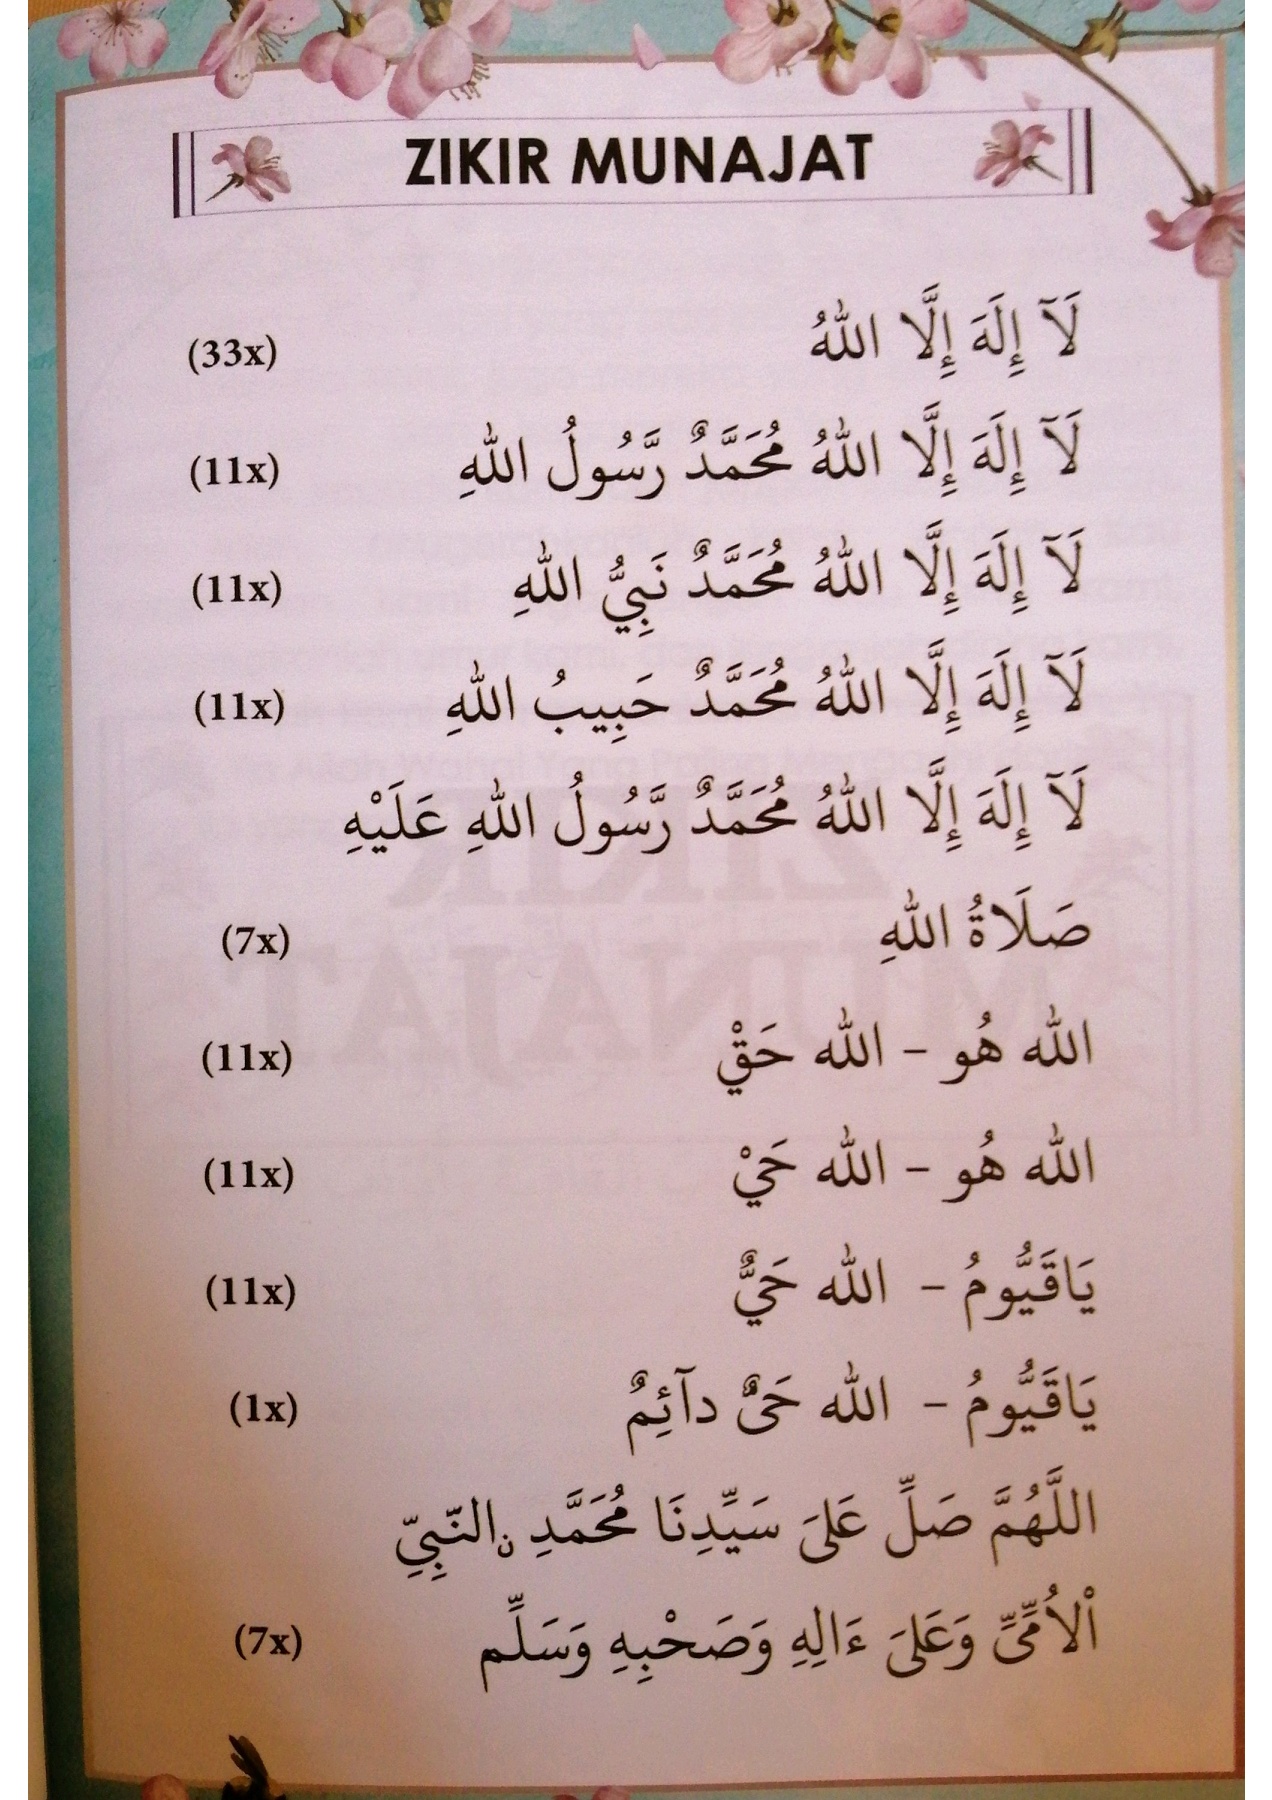 ZIKIR MUNAJAT
لَآ إِلَهَ إِلَّا اللهُ (33x)
لَآ إِلَهَ إِلَّا اللهُ مُحَمَّدٌ رَّسُولُ اللهِ (11x)
لَآ إِلَهَ إِلَّا اللهُ مُحَمَّدٌ نَبِيُّ اللهِ (11x)
لَآ إِلَهَ إِلَّا اللهُ مُحَمَّدٌ حَبِيبُ اللهِ (11x)
لَآ إِلَهَ إِلَّا اللهُ مُحَمَّدٌ رَّسُولُ اللهِ عَلَيْهِ
صَلَاةُ اللهِ (7x)
الله هُو - الله حَقْ (11x)
الله هُو - الله حَيْ (11x)
يَاقَيُّومُ - الله حَيٌّ (11x)
يَاقَيُّومُ - الله حَىٌّ دآئِمٌ (1x)
اللَّهُمَّ صَلِّ عَلىَ سَيِّدِنَا مُحَمَّدِ نِ النَّبِيِّ
اْلاُمِّىِّ وَعَلىَ ءَالِهِ وَصَحْبِهِ وَسَلِّم (7x)